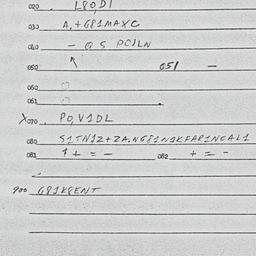 020 L80,D1
030 A,+G81MAXC
040 - QS PC1LN
050 051 -
060
061
X070 P0,V1DL
080 S1TN1Z+ZA,NG81N1KFAR1NCAL1
081 ++=- 082 +=-
900 G81KRENT